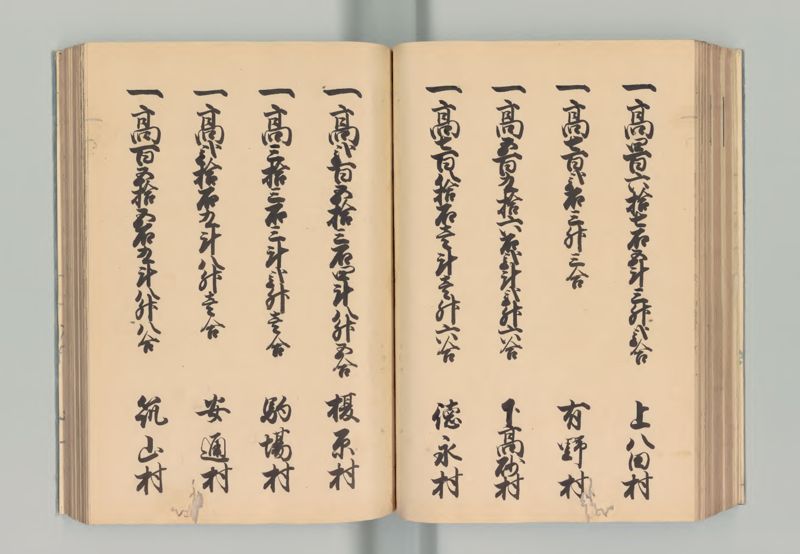 一高四百六拾七石五斗三升弐合 上八田村
一高七百弐石三升三合 有野村
一高五百九拾六石弐斗弐升六合 下高砂村
一高七百八拾石壱斗壱升六合 徳永村
一高弐百五拾三石四斗八升五合 榎原村
一高三拾三石三斗弐升壱合 駒場村
一高弐拾石九斗八升壱合 安通村
一高百五拾五石五斗八升八合 築山村